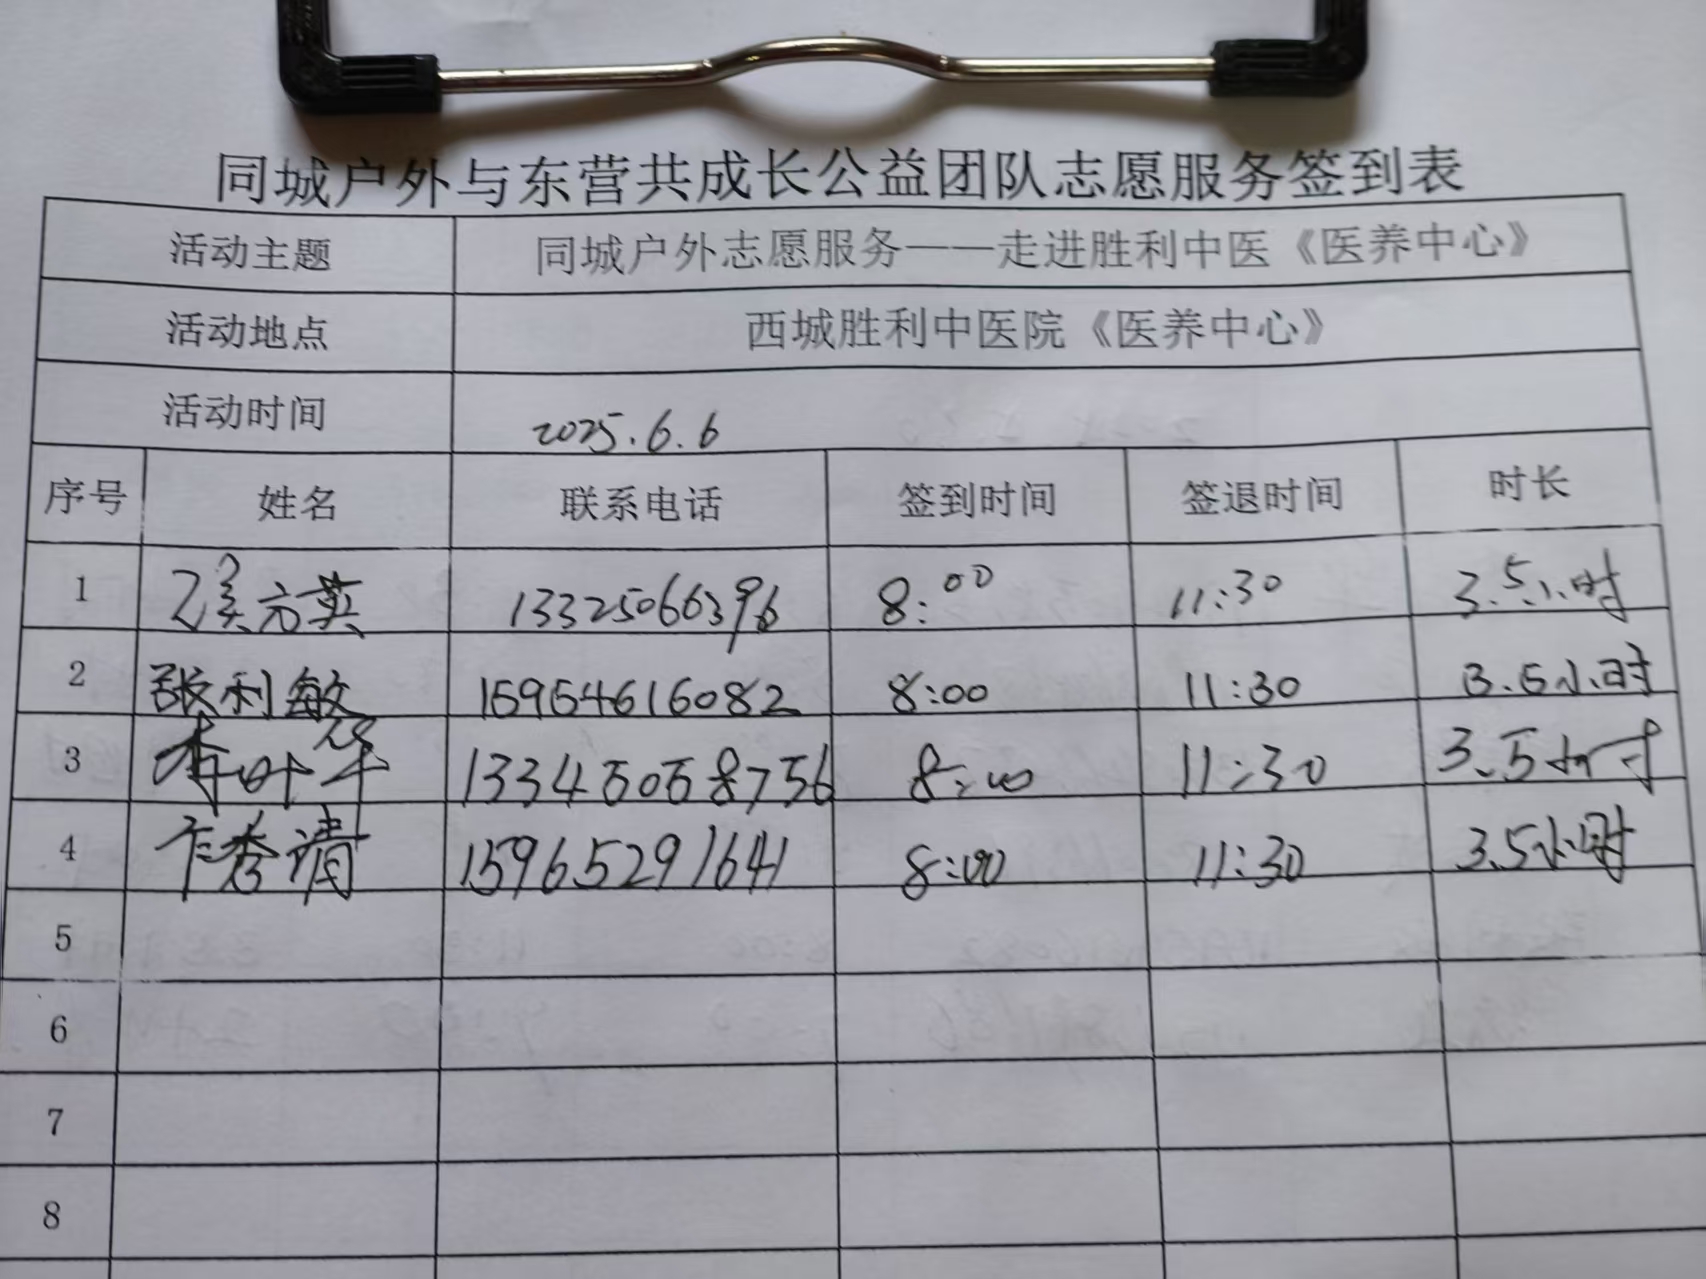 同城户外与东营共成长公益团队志愿服务签到表
活动主题 同城户外志愿服务——走进胜利中医《医养中心》
活动地点 西城胜利中医院《医养中心》
活动时间 2025.6.6
序号 姓名 联系电话 签到时间 签退时间 时长
1 13325066396 8:00 11:30 3.5小时
2 张利敏 15954616082 8:00 11:30 3.5小时
3 13345058756 8:00 11:30 3.5小时
4 卞秀清 15965291641 8:00 11:30 3.5小时
5
6
7
8